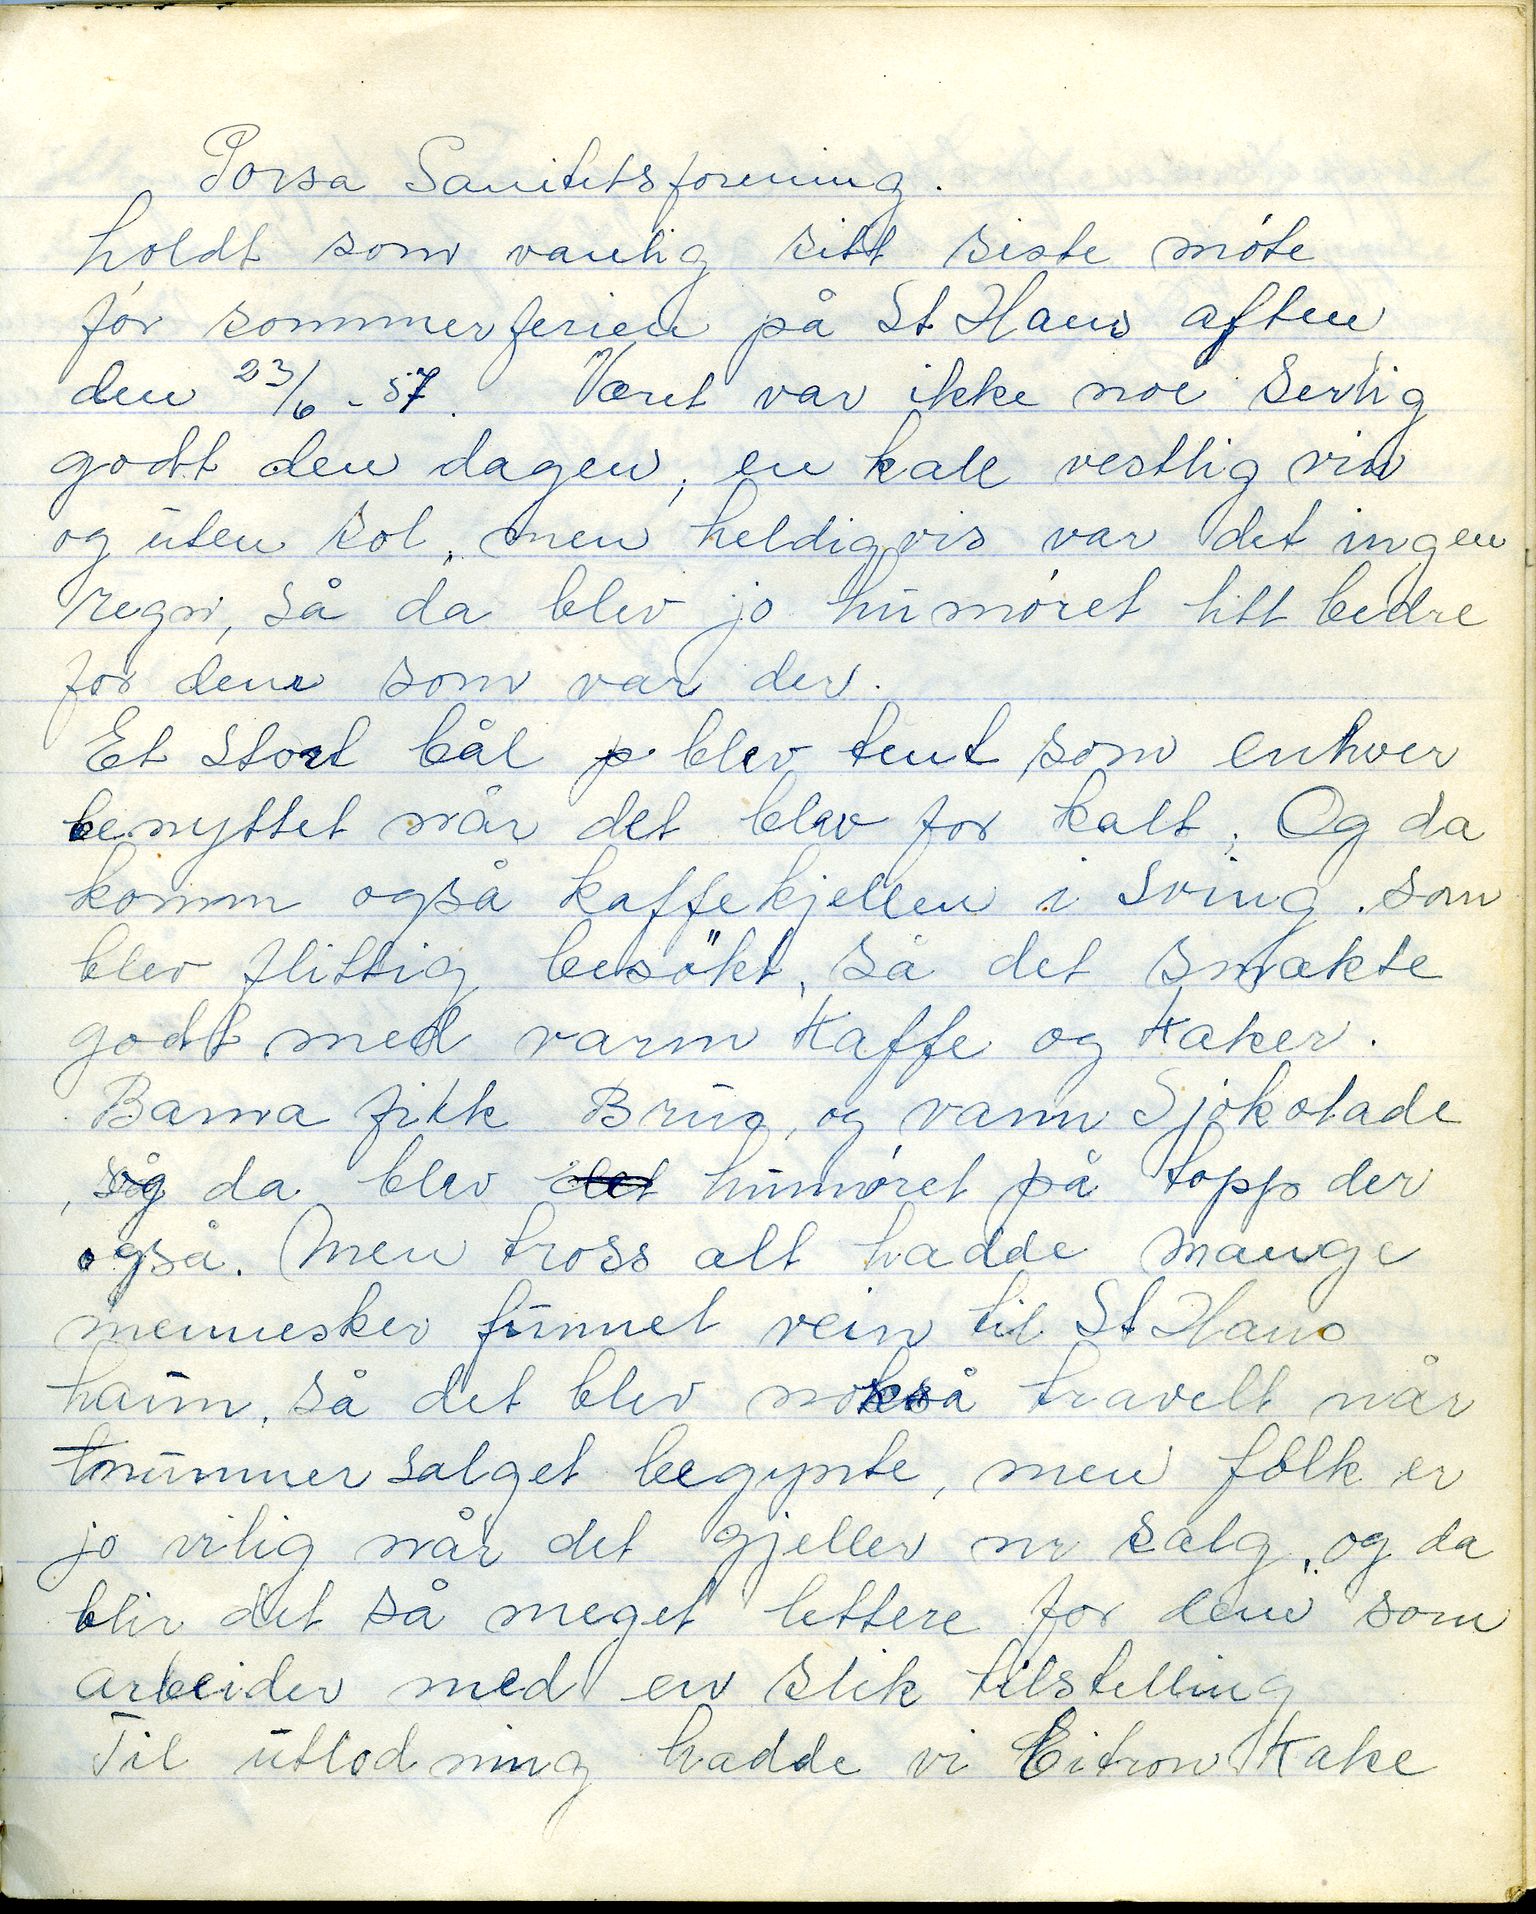 Porsa Sanitetsforening.
holdt som vanlig sitt siste møte
før sommerferien på St Hans aften
den 23/6 - 57. Været var ikke noe serlig
godt den dagen, en kall vestlig vin
og uten sol, men heldigvis var det ingen
regn, så da blev jo humøret litt bedre
for dem som var der.
Et stort bål blev tent som enhver
benyttet når det blev for kalt. Og da
komm også kaffekjellen i sving. som
blev flittig besökt, så det smakte
godt med varm Kaffe og Kaker.
Barna fikk Brus, og varm Sjokolade
, og da blev humøret på topp der
også. Men tross alt hadde mange
mennesker funnet vein til St Hans
haun, så det blev nokså travelt når
nummersalget begynte, men folk er
jo vilig når det gjeller nr salg, og da
blir det så meget lettere for dem som
arbeider med en slik tilstelling
Til utlodning hadde vi Citron Kake